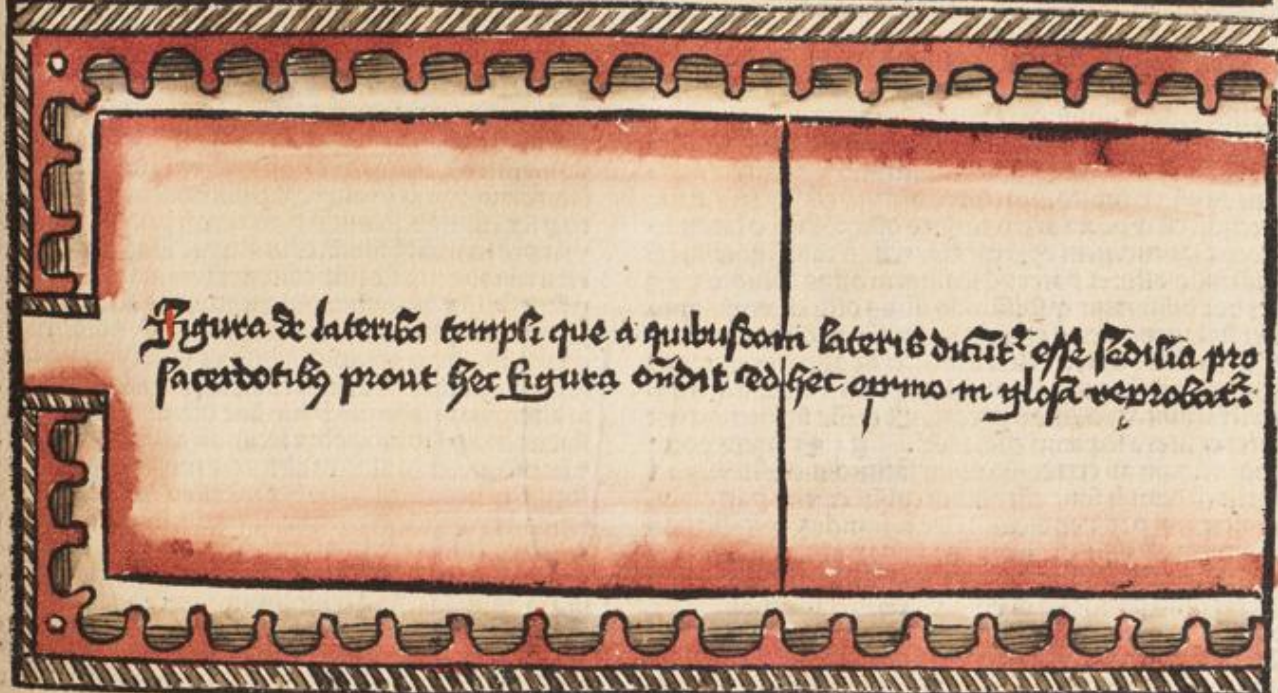 Figura de lateribꝫ templi que a quibusdam lateris dicūtʳ esse sedilia pro
sacerdotibꝫ prout hec figura oñdit sed hec opimo in glosa reprobatʳ.